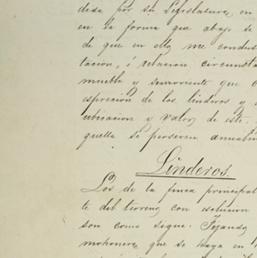 dada por su Lejislatura, en
en la forma que abajo se
de que en ella me conduz
tacion, i relacion circunsta
mueble y semoviente que
espresion de los linderos y
ubicacion y valor de este.
quella se perseren anualm
Linderos
Los de la finca principal
te del terreno, con esclusion
son como sigue. Tejando
mohonera que se haya en